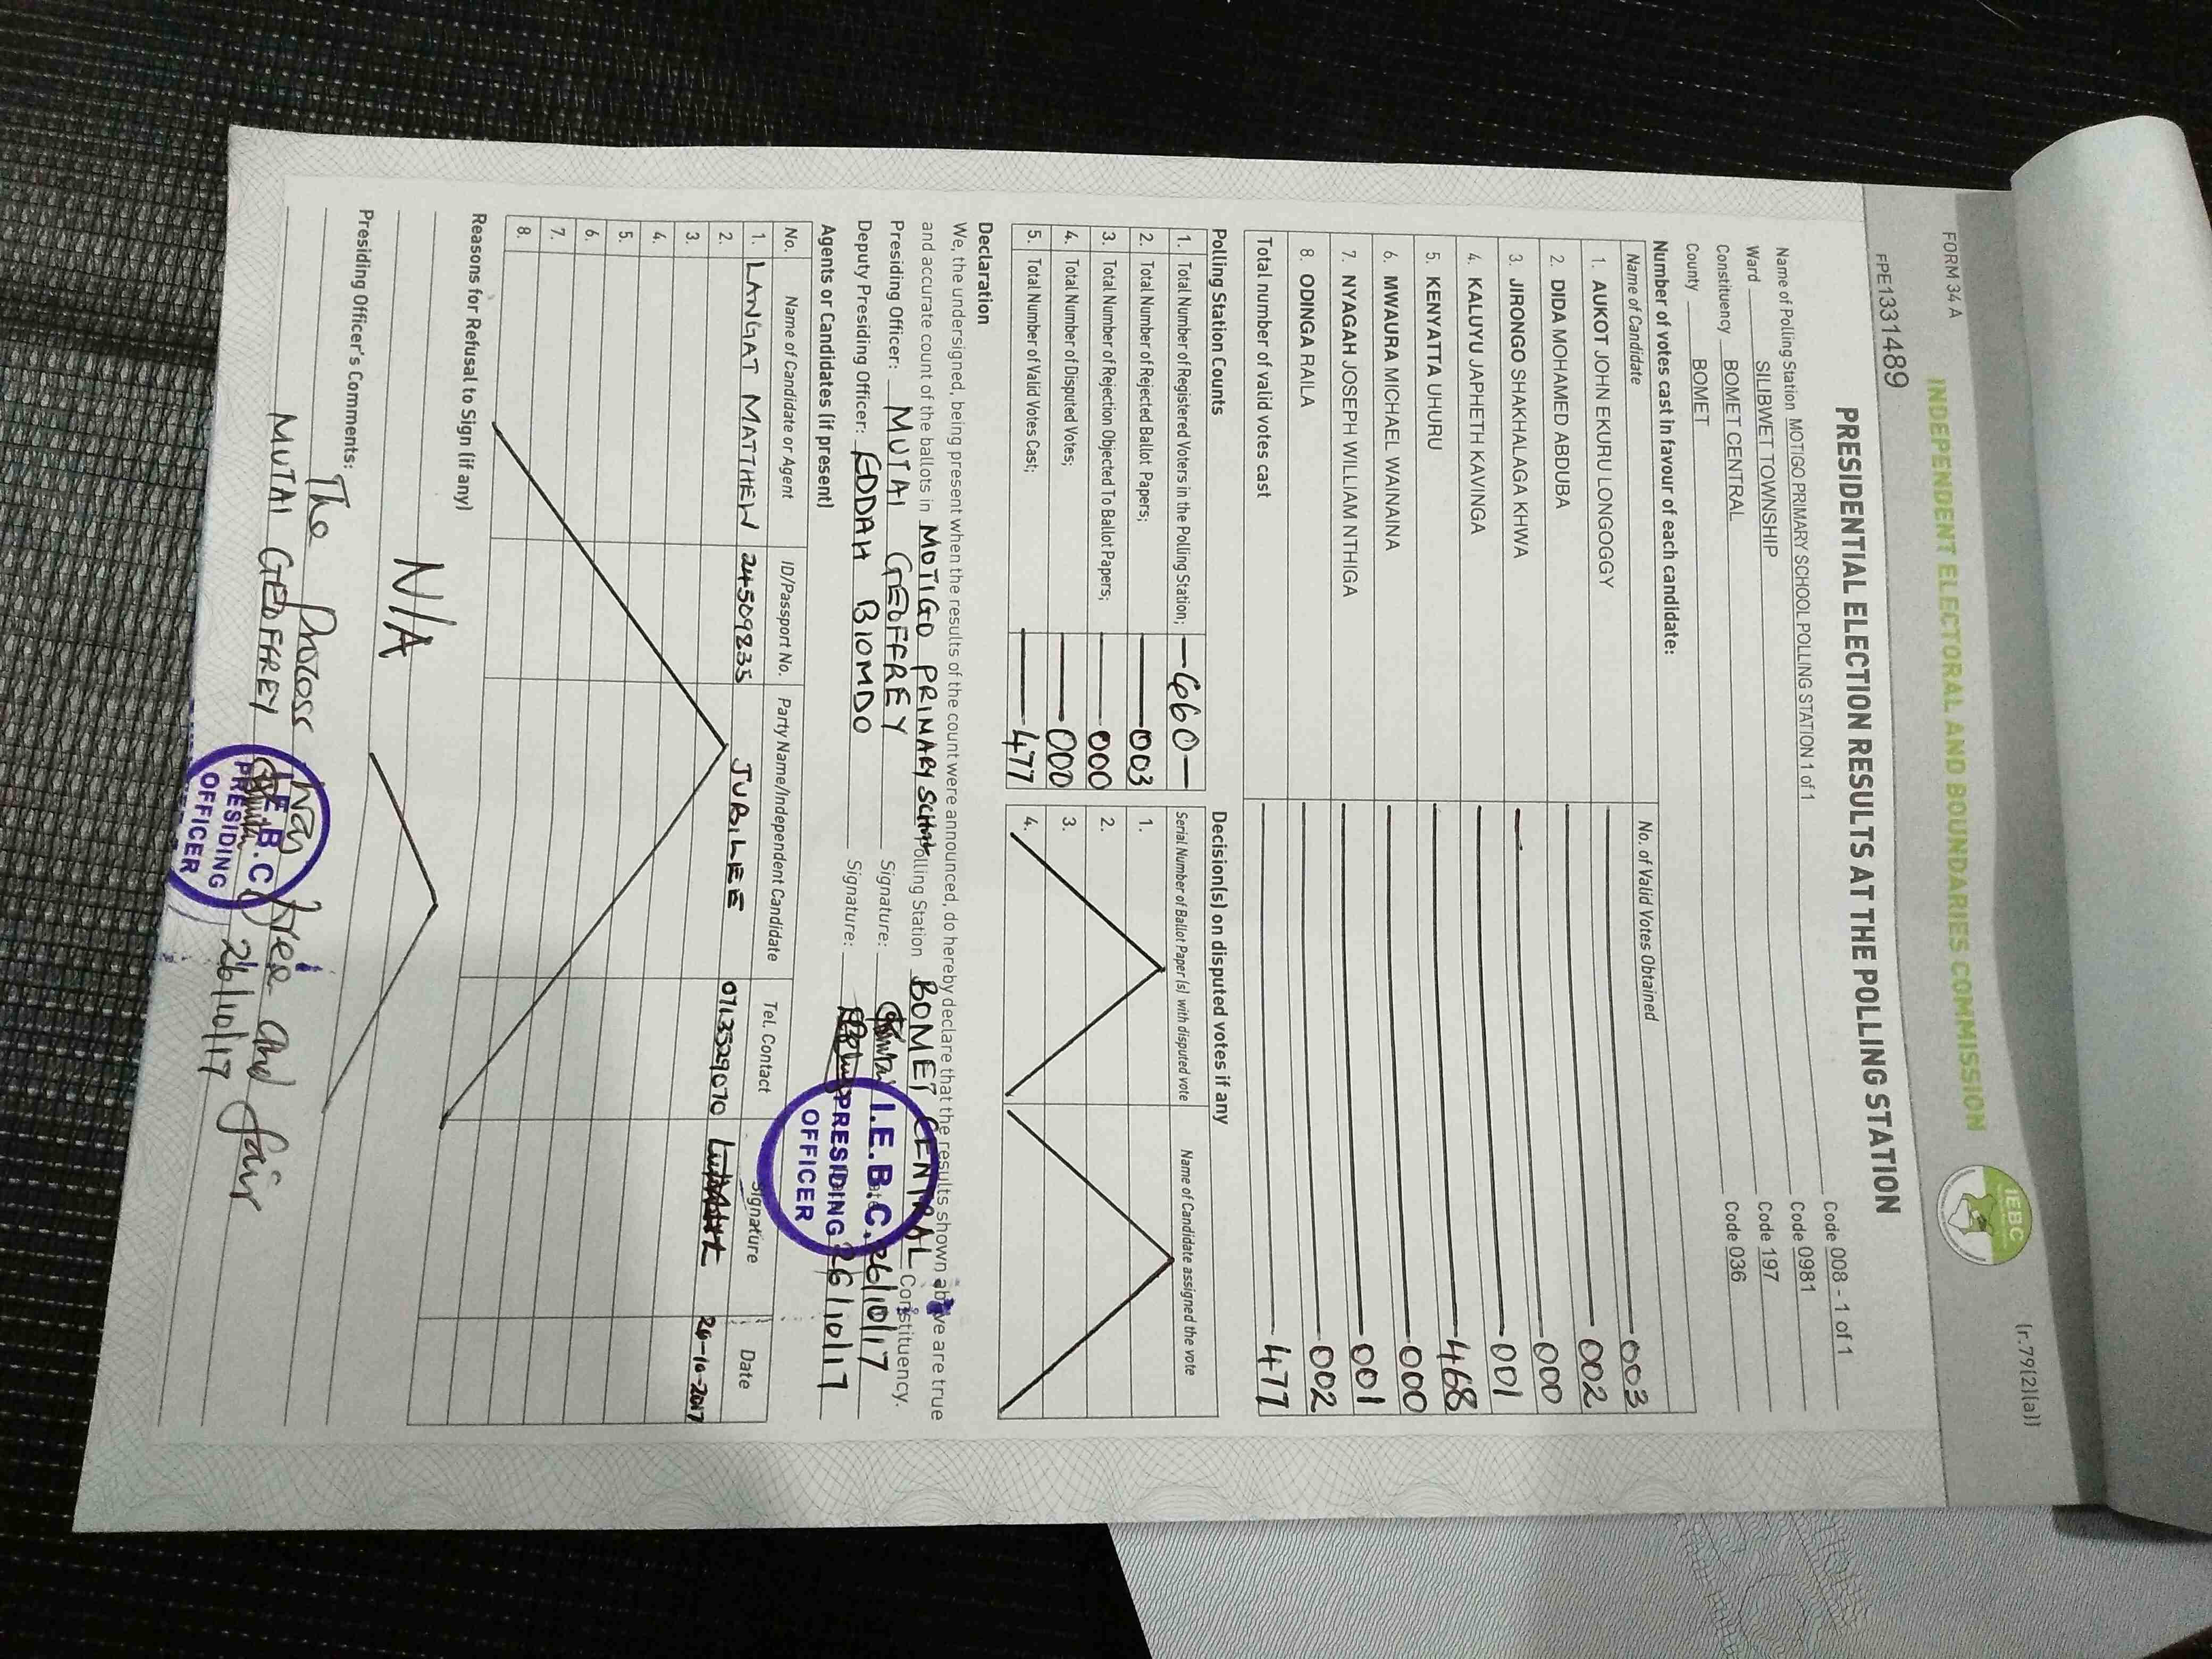 FORM 34 A
(r.79(2)(a))
INDEPENDENT ELECTORAL AND BOUNDARIES COMMISSION
IEBC
FPE1331489
PRESIDENTIAL ELECTION RESULTS AT THE POLLING STATION
Name of Polling Station MOTIGO PRIMARY SCHOOL POLLING STATION 1 of 1 Code 008 - 1 of 1
Ward SILIBWET TOWNSHIP Code 0981
Constituency BOMET CENTRAL Code 197
County BOMET Code 036
Number of votes cast in favour of each candidate:
Name of Candidate No. of Valid Votes Obtained
1. AUKOT JOHN EKURU LONGOGGY 003
2. DIDA MOHAMED ABDUBA 002
3. JIRONGO SHAKHALAGA KHWA 000
4. KALUYU JAPHETH KAVINGA 001
5. KENYATTA UHURU 468
6. MWAURA MICHAEL WAINAINA 000
7. NYAGAH JOSEPH WILLIAM NTHIGA 001
8. ODINGA RAILA 002
Total number of valid votes cast 477
Polling Station Counts
1. Total Number of Registered Voters in the Polling Station; 660
2. Total Number of Rejected Ballot Papers; 003
3. Total Number of Rejection Objected To Ballot Papers; 000
4. Total Number of Disputed Votes; 000
5. Total Number of Valid Votes Cast; 477
Decision(s) on disputed votes if any
Serial Number of Ballot Paper(s) with disputed vote Name of Candidate assigned the vote
1.
2.
3.
4.
Declaration
We, the undersigned, being present when the results of the count were announced, do hereby declare that the results shown above are true
and accurate count of the ballots in MOTIGO PRIMARY Polling Station BOMET CENTRAL Constituency.
Presiding Officer: MUTAI GEOFFREY Signature: 26/10/17
Deputy Presiding Officer: EDDAH BIOMDO Signature: 26/10/17
I.E.B.C.
PRESIDING
OFFICER
Agents or Candidates (if present)
No. Name of Candidate or Agent ID/Passport No. Party Name/Independent Candidate Tel. Contact Signature Date
1. LANGAT MATTHEW 24509235 JUBILEE 0713529070 26-10-2017
2.
3.
4.
5.
6.
7.
8.
Reasons for Refusal to Sign (if any)
N/A
Presiding Officer's Comments:
The Process was free and fair
MUTAI GEOFFREY 26/10/17
I.E.B.C
PRESIDING
OFFICER